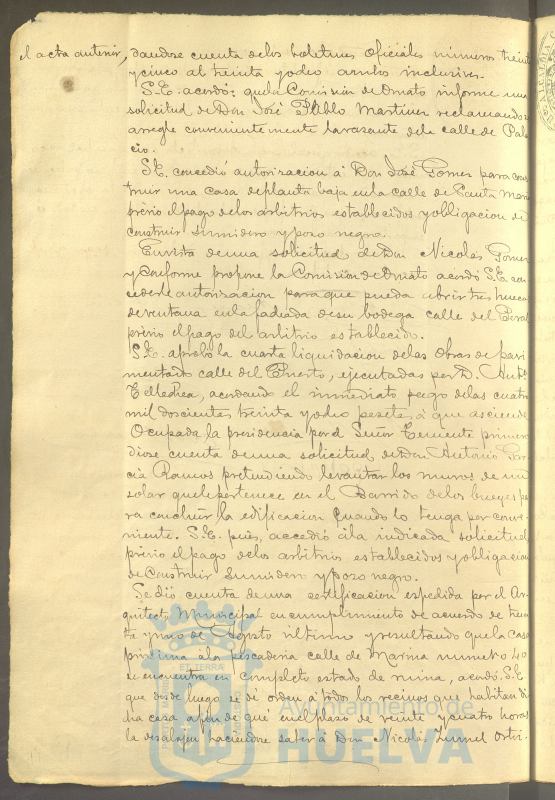 el acta anterior, dandose cuenta delos boletines oficiales números treinta
y cinco al treinta y ocho ambos inclusives.
S.E. acordó: quela Comisión de Ornato informe una
solicitud de Don José Pablo Martinez reclamando se
arregle convenientemente la rasante dela calle de Pala-
cio.
S.E. concedió autorizacion á Don José Gomez para cons
truir una casa de planta baja enla calle de Santa Maria
previo el pago delos arbitrios establecidos y obligacion de
construir sumidero y pozo negro.
En vista de una solicitud de Don Nicolas Gomez
y conforme propone la Comisión de Ornato acordó S.E. con
cederle autorizacion para que pueda abrir tres huecos
de ventana enla fachada de su bodega calle del Peral
previo el pago del arbitrio establecido.
S.E. aprobó la cuarta liquidacion delas obras de pavi
mentado calle del Puerto, ejecutadas por D. Antº
Tellechea, acordando el inmediato pago delas cuatro
mil doscientas treinta y ocho pesetas á que asciende.
Ocupada la presidencia por el Señor Teniente primero
diose cuenta de una solicitud de Don Antonio Gar
cia Ramos pretendiendo levantar los muros de un
solar que le pertenece en el Barrido delos bueyes pa
ra concluir la edificacion cuando lo tenga por conve-
niente. S.E. pues, accedió ála indicada solicitud
previo el pago delos arbitrios establecidos y obligacion
de construir sumidero y pozo negro.
Se dió cuenta de una certificacion espedida por el Ar-
quitecto Municipal en cumplimiento de acuerdo de trein
ta y uno de Agosto ultimo y resultando quela casa
próxima ála pescaderia calle de Marina numero 40
se encuentra en completo estado de ruina, acordó S.E.
que desde luego se dé orden á todos los vecinos que habitan di
cha casa afin de que en el plazo de veinte y cuatro horas
la desalojen haciendose saber á Don Nicolas Ortiz.
ET TERRÆ
Ayuntamiento de
HUELVA